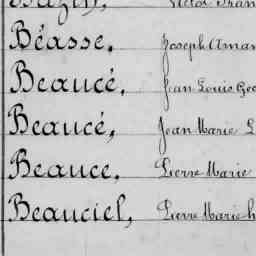 Béasse, Joseph Aman
Beaucé. Jean Louis Geo
Beaucé, Jean Marie L
Beauce. Pierre Marie
Beauciel, Pierre Marie h